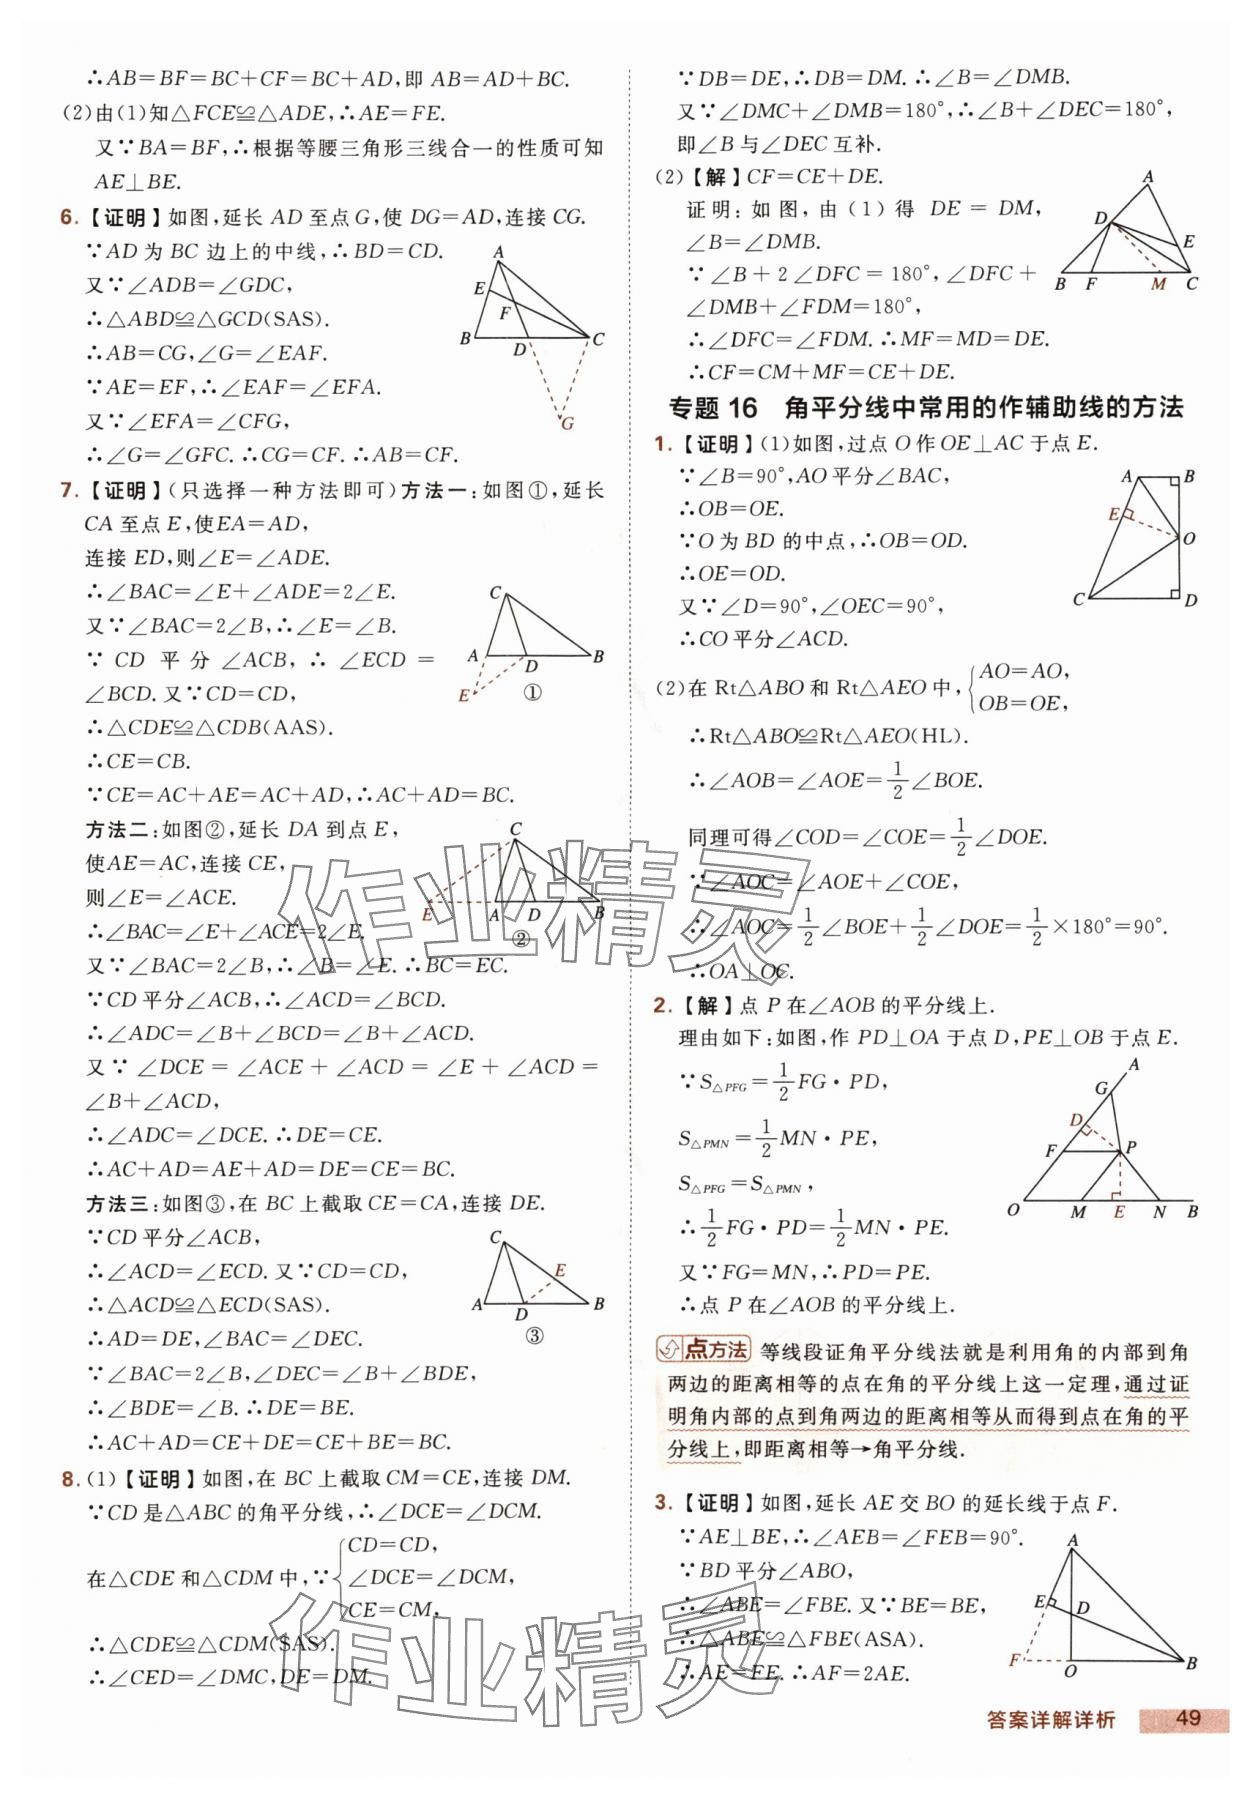 ∴AB=BF=BC+CF=BC+AD,即 AB=AD+BC.
(2)由(1)知△FCE≌△ADE,∴AE=FE.
又∵BA=BF,∴根据等腰三角形三线合一的性质可知
AE⊥BE.
6.【证明】如图,延长 AD 至点 G,使 DG=AD,连接 CG.
∵AD 为 BC 边上的中线,∴BD=CD.
又∵∠ADB=∠GDC,
∴△ABD≌△GCD(SAS).
∴AB=CG,∠G=∠EAF.
∵AE=EF,∴∠EAF=∠EFA.
又∵∠EFA=∠CFG,
∴∠G=∠GFC.∴CG=CF.∴AB=CF.
A
E
F
B
D
C
G
7.【证明】(只选择一种方法即可)方法一:如图①,延长
CA 至点 E,使EA=AD,
连接 ED,则∠E=∠ADE.
∴∠BAC=∠E+∠ADE=2∠E.
又∵∠BAC=2∠B,∴∠E=∠B.
∵ CD 平 分 ∠ACB, ∴ ∠ECD =
∠BCD.又∵CD=CD,
∴△CDE≌△CDB(AAS).
∴CE=CB.
∵CE=AC+AE=AC+AD,∴AC+AD=BC.
C
A
D
B
E
①
方法二:如图②,延长 DA 到点 E,
使AE=AC,连接 CE,
则∠E=∠ACE.
∴∠BAC=∠E+∠ACE=2∠E.
又∵∠BAC=2∠B,∴∠B=∠E.∴BC=EC.
∵CD平分∠ACB,∴∠ACD=∠BCD.
∴∠ADC=∠B+∠BCD=∠B+∠ACD.
又∵ ∠DCE = ∠ACE + ∠ACD = ∠E + ∠ACD =
∠B+∠ACD,
∴∠ADC=∠DCE.∴DE=CE.
∴AC+AD=AE+AD=DE=CE=BC.
C
E
A
D
B
②
方法三:如图③,在 BC 上截取 CE=CA,连接 DE.
∵CD 平分∠ACB,
∴∠ACD=∠ECD.又∵CD=CD,
∴△ACD≌△ECD(SAS).
∴AD=DE,∠BAC=∠DEC.
∵∠BAC=2∠B,∠DEC=∠B+∠BDE,
∴∠BDE=∠B.∴DE=BE.
∴AC+AD=CE+DE=CE+BE=BC.
C
E
A
D
B
③
8.(1)【证明】如图,在 BC 上截取 CM=CE,连接 DM.
∵CD 是△ABC 的角平分线,∴∠DCE=∠DCM.
在△CDE 和△CDM 中,∵{CD=CD,
∠DCE=∠DCM,
CE=CM,
∴△CDE≌△CDM(SAS).
∴∠CED=∠DMC,DE=DM.
∵DB=DE,∴DB=DM.∴∠B=∠DMB.
又∵∠DMC+∠DMB=180°,∴∠B+∠DEC=180°,
即∠B 与∠DEC 互补.
(2)【解】CF=CE+DE.
证明:如图,由(1)得 DE = DM,
∠B=∠DMB.
∵ ∠B + 2∠DFC = 180°, ∠DFC +
∠DMB+∠FDM=180°,
∴∠DFC=∠FDM.∴MF=MD=DE.
∴CF=CM+MF=CE+DE.
A
D
E
B
F
M
C
专题 16 角平分线中常用的作辅助线的方法
1.【证明】(1)如图,过点 O 作 OE⊥AC 于点 E.
∵∠B=90°,AO 平分∠BAC,
∴OB=OE.
∵O 为 BD 的中点,∴OB=OD.
∴OE=OD.
又∵∠D=90°,∠OEC=90°,
∴CO 平分∠ACD.
A
B
E
O
C
D
(2)在 Rt△ABO 和 Rt△AEO 中,{AO=AO,
OB=OE,
∴Rt△ABO≌Rt△AEO(HL).
∴∠AOB=∠AOE=1/2∠BOE.
同理可得∠COD=∠COE=1/2∠DOE.
∵∠AOC=∠AOE+∠COE,
∴∠AOC=1/2∠BOE+1/2∠DOE=1/2×180°=90°.
∴OA⊥OC.
2.【解】点 P 在∠AOB 的平分线上.
理由如下:如图,作 PD⊥OA 于点 D,PE⊥OB 于点 E.
∵S△PFG=1/2FG·PD,
S△PMN=1/2MN·PE,
S△PFG=S△PMN,
∴1/2FG·PD=1/2MN·PE.
又∵FG=MN,∴PD=PE.
∴点 P 在∠AOB 的平分线上.
A
G
D
F
P
O
M
E
N
B
点方法 等线段证角平分线法就是利用角的内部到角
两边的距离相等的点在角的平分线上这一定理,通过证
明角内部的点到角两边的距离相等从而得到点在角的平
分线上,即距离相等→角平分线.
3.【证明】如图,延长 AE 交 BO 的延长线于点 F.
∵AE⊥BE,∴∠AEB=∠FEB=90°.
∵BD 平分∠ABO,
∴∠ABE=∠FBE.又∵BE=BE,
∴△ABE≌△FBE(ASA).
∴AE=FE.∴AF=2AE.
A
E
D
F
O
B
作业精灵
作业精灵
答案详解详析 49